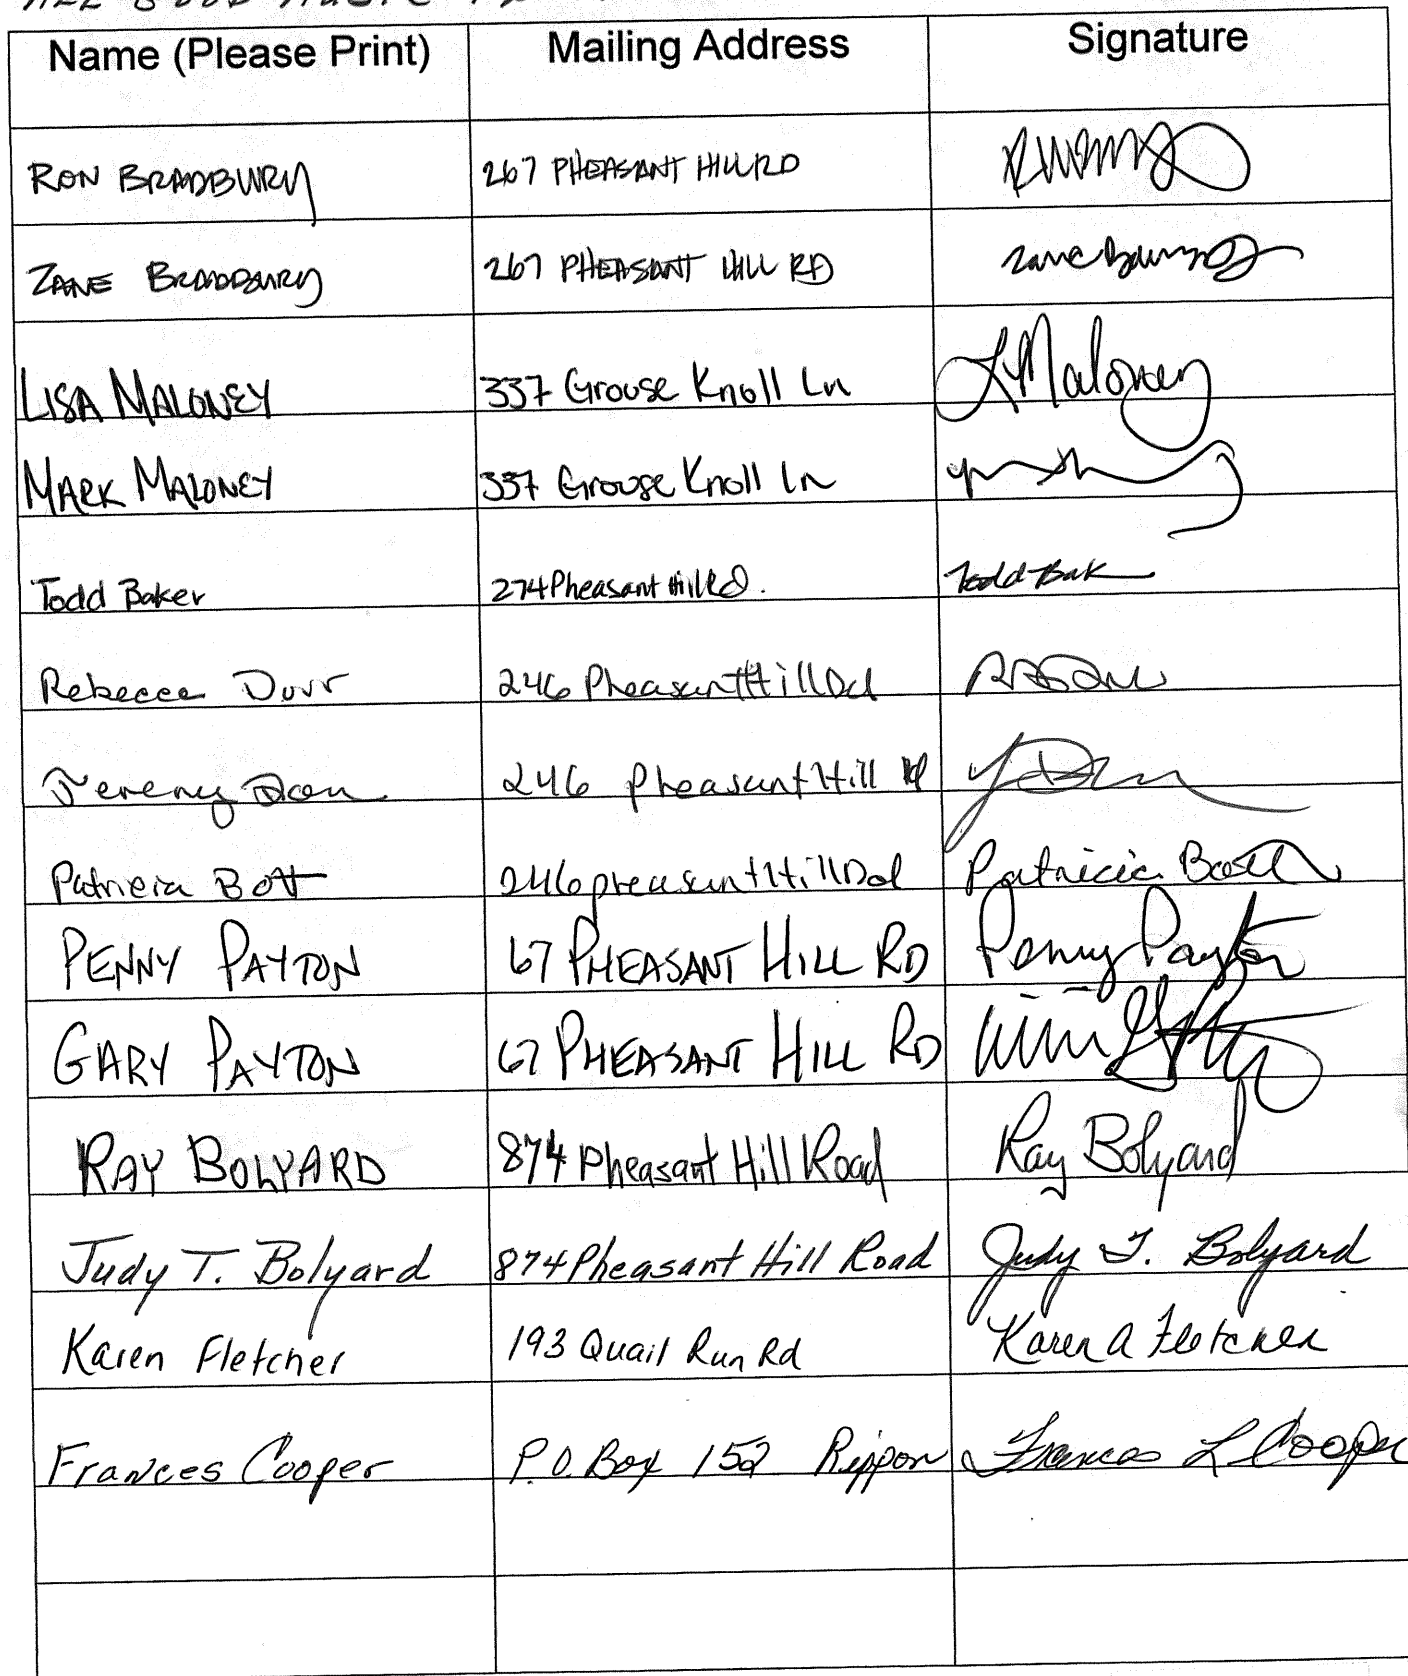 ALL GOOD MUSIC
Name (Please Print) Mailing Address Signature
RON BRADBURY 267 PHEASANT HILL RD
ZANE BRADBURY 267 PHEASANT HILL RD
LISA MALONEY 337 Grouse Knoll Ln L Maloney
MARK MALONEY 337 Grouse Knoll Ln
Todd Baker 274 Pheasant Hill Rd. Todd Bak
Rebecca Durr 246 Pheasant Hill Rd
Jeremy 246 Pheasant Hill Rd
Patricia Bott 246 pheasant Hill Rd Patricia Bott
PENNY PAYTON 67 PHEASANT HILL RD Penny Payton
GARY PAYTON 67 PHEASANT HILL RD
RAY BOLYARD 874 Pheasant Hill Road Ray Bolyard
Judy T. Bolyard 874 Pheasant Hill Road Judy T. Bolyard
Karen Fletcher 193 Quail Run Rd Karen A Fletcher
Frances Cooper P.O. Box 152 Rippon Frances L Cooper